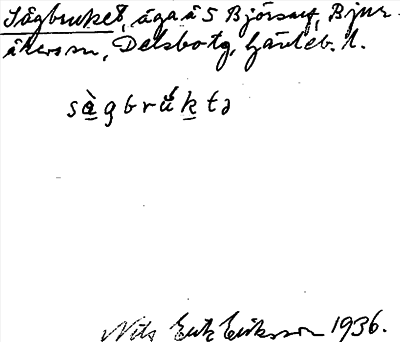 Sågbruket, äga å S Björsarf, Bjur-
åkers sn, Delsbo tg, Gävleb. l.
sàgbrúktə
Nils Erik Eriksson 1936.